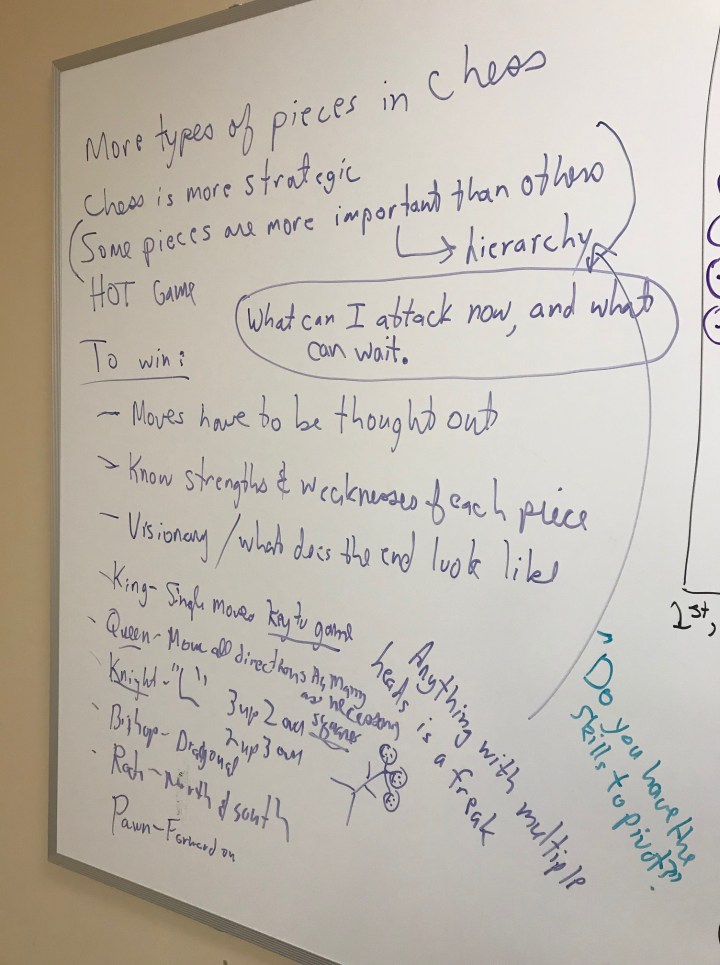 More types of pieces in Chess
Chess is more strategic
Some pieces are more important than others
hierarchy
HOT Game
What can I attack now, and what
can wait.
To win:
- Moves have to be thought out
> Know strengths & weaknesses of each piece
- Visionary / what does the end look like
King - Single moves key to game
Queen - Move all directions As many
as necessary
Knight - "L" 3 up 2 over squares
2 up 3 over
Bishop - Diagonal
Rook - North & south
Pawn - Forward on
Anything with multiple
heads is a freak
Do you have the
skills to pivot?
2st,